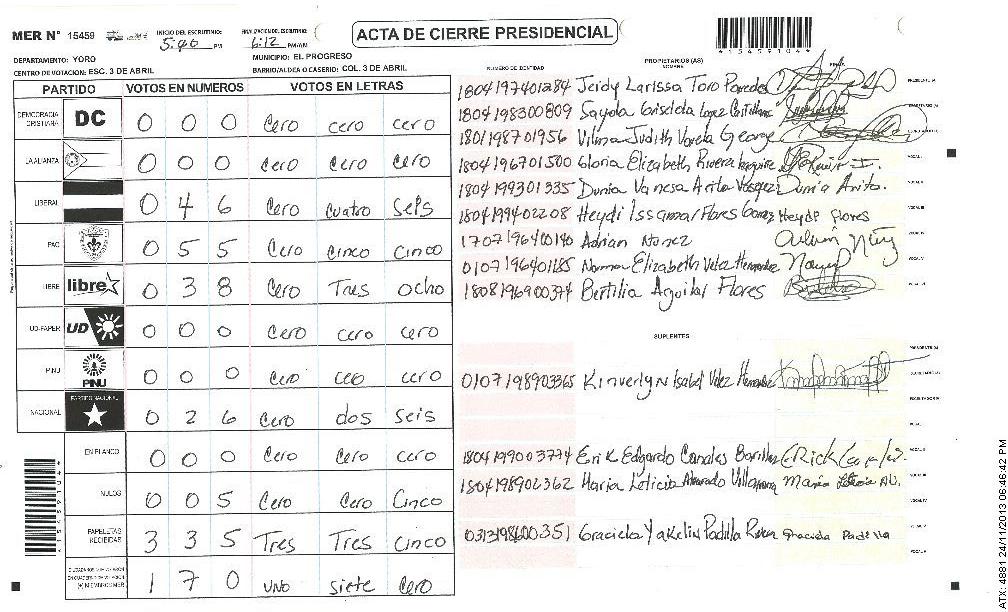 MER N° 15459
INICIO DEL ESCRUTINIO: 5:40 PM
FINALIZACION DEL ESCRUTINIO: 6:12 PM/AM
ACTA DE CIERRE PRESIDENCIAL
*154591044*
DEPARTAMENTO: YORO
MUNICIPIO: EL PROGRESO
CENTRO DE VOTACION: ESC. 3 DE ABRIL
BARRIO/ALDEA O CASERIO: COL. 3 DE ABRIL
PARTIDO VOTOS EN NUMEROS VOTOS EN LETRAS
DEMOCRACIA CRISTIANA DC 0 0 0 Cero cero cero
LA ALIANZA 0 0 0 cero cero cero
LIBERAL 0 4 6 Cero cuatro seis
PAC 0 5 5 Cero cinco cinco
LIBRE libre 0 3 8 Cero Tres ocho
UD-FAPER UD 0 0 0 Cero cero cero
PINU PINU 0 0 0 Cero cero cero
NACIONAL PARTIDO NACIONAL 0 2 6 Cero dos seis
EN BLANCO 0 0 0 Cero cero cero
NULOS 0 0 5 Cero Cero Cinco
PAPELETAS RECIBIDAS 3 3 5 Tres Tres cinco
1 7 0 uno siete cero
NUMERO DE IDENTIDAD
PROPIETARIOS (AS)
NOMBRE
FIRMA
1804197401284 Jeidy Larissa Toro Paredes
1804198300809 Sayda Griselda Lopez
1801198701956 Vilma Judith Varela George
1804196701500 Gloria Elizabeth Rivera
1804199301335 Dunia Vanesa Arita Vasquez Dunia Arita.
1804199402208 Heydi Issamar Flores Gomez Heydi flores
1707196400140 Adrian Nunez
0107196401185 Norma Elizabeth Velez Hernandez
1808196900374 Bertilia Aguilar Flores
SUPLENTES
0107198903365 Kinverlyn Isabel Velez Hernandez
1804199003774 Erik Edgardo Canales Barillas
1804198902362 Maria Leticia Alvarado
0313198600351 Graciela Yakelin Padilla Rivera Graciela Padilla
ATX: 4881 24/11/2013 06:46:42 PM